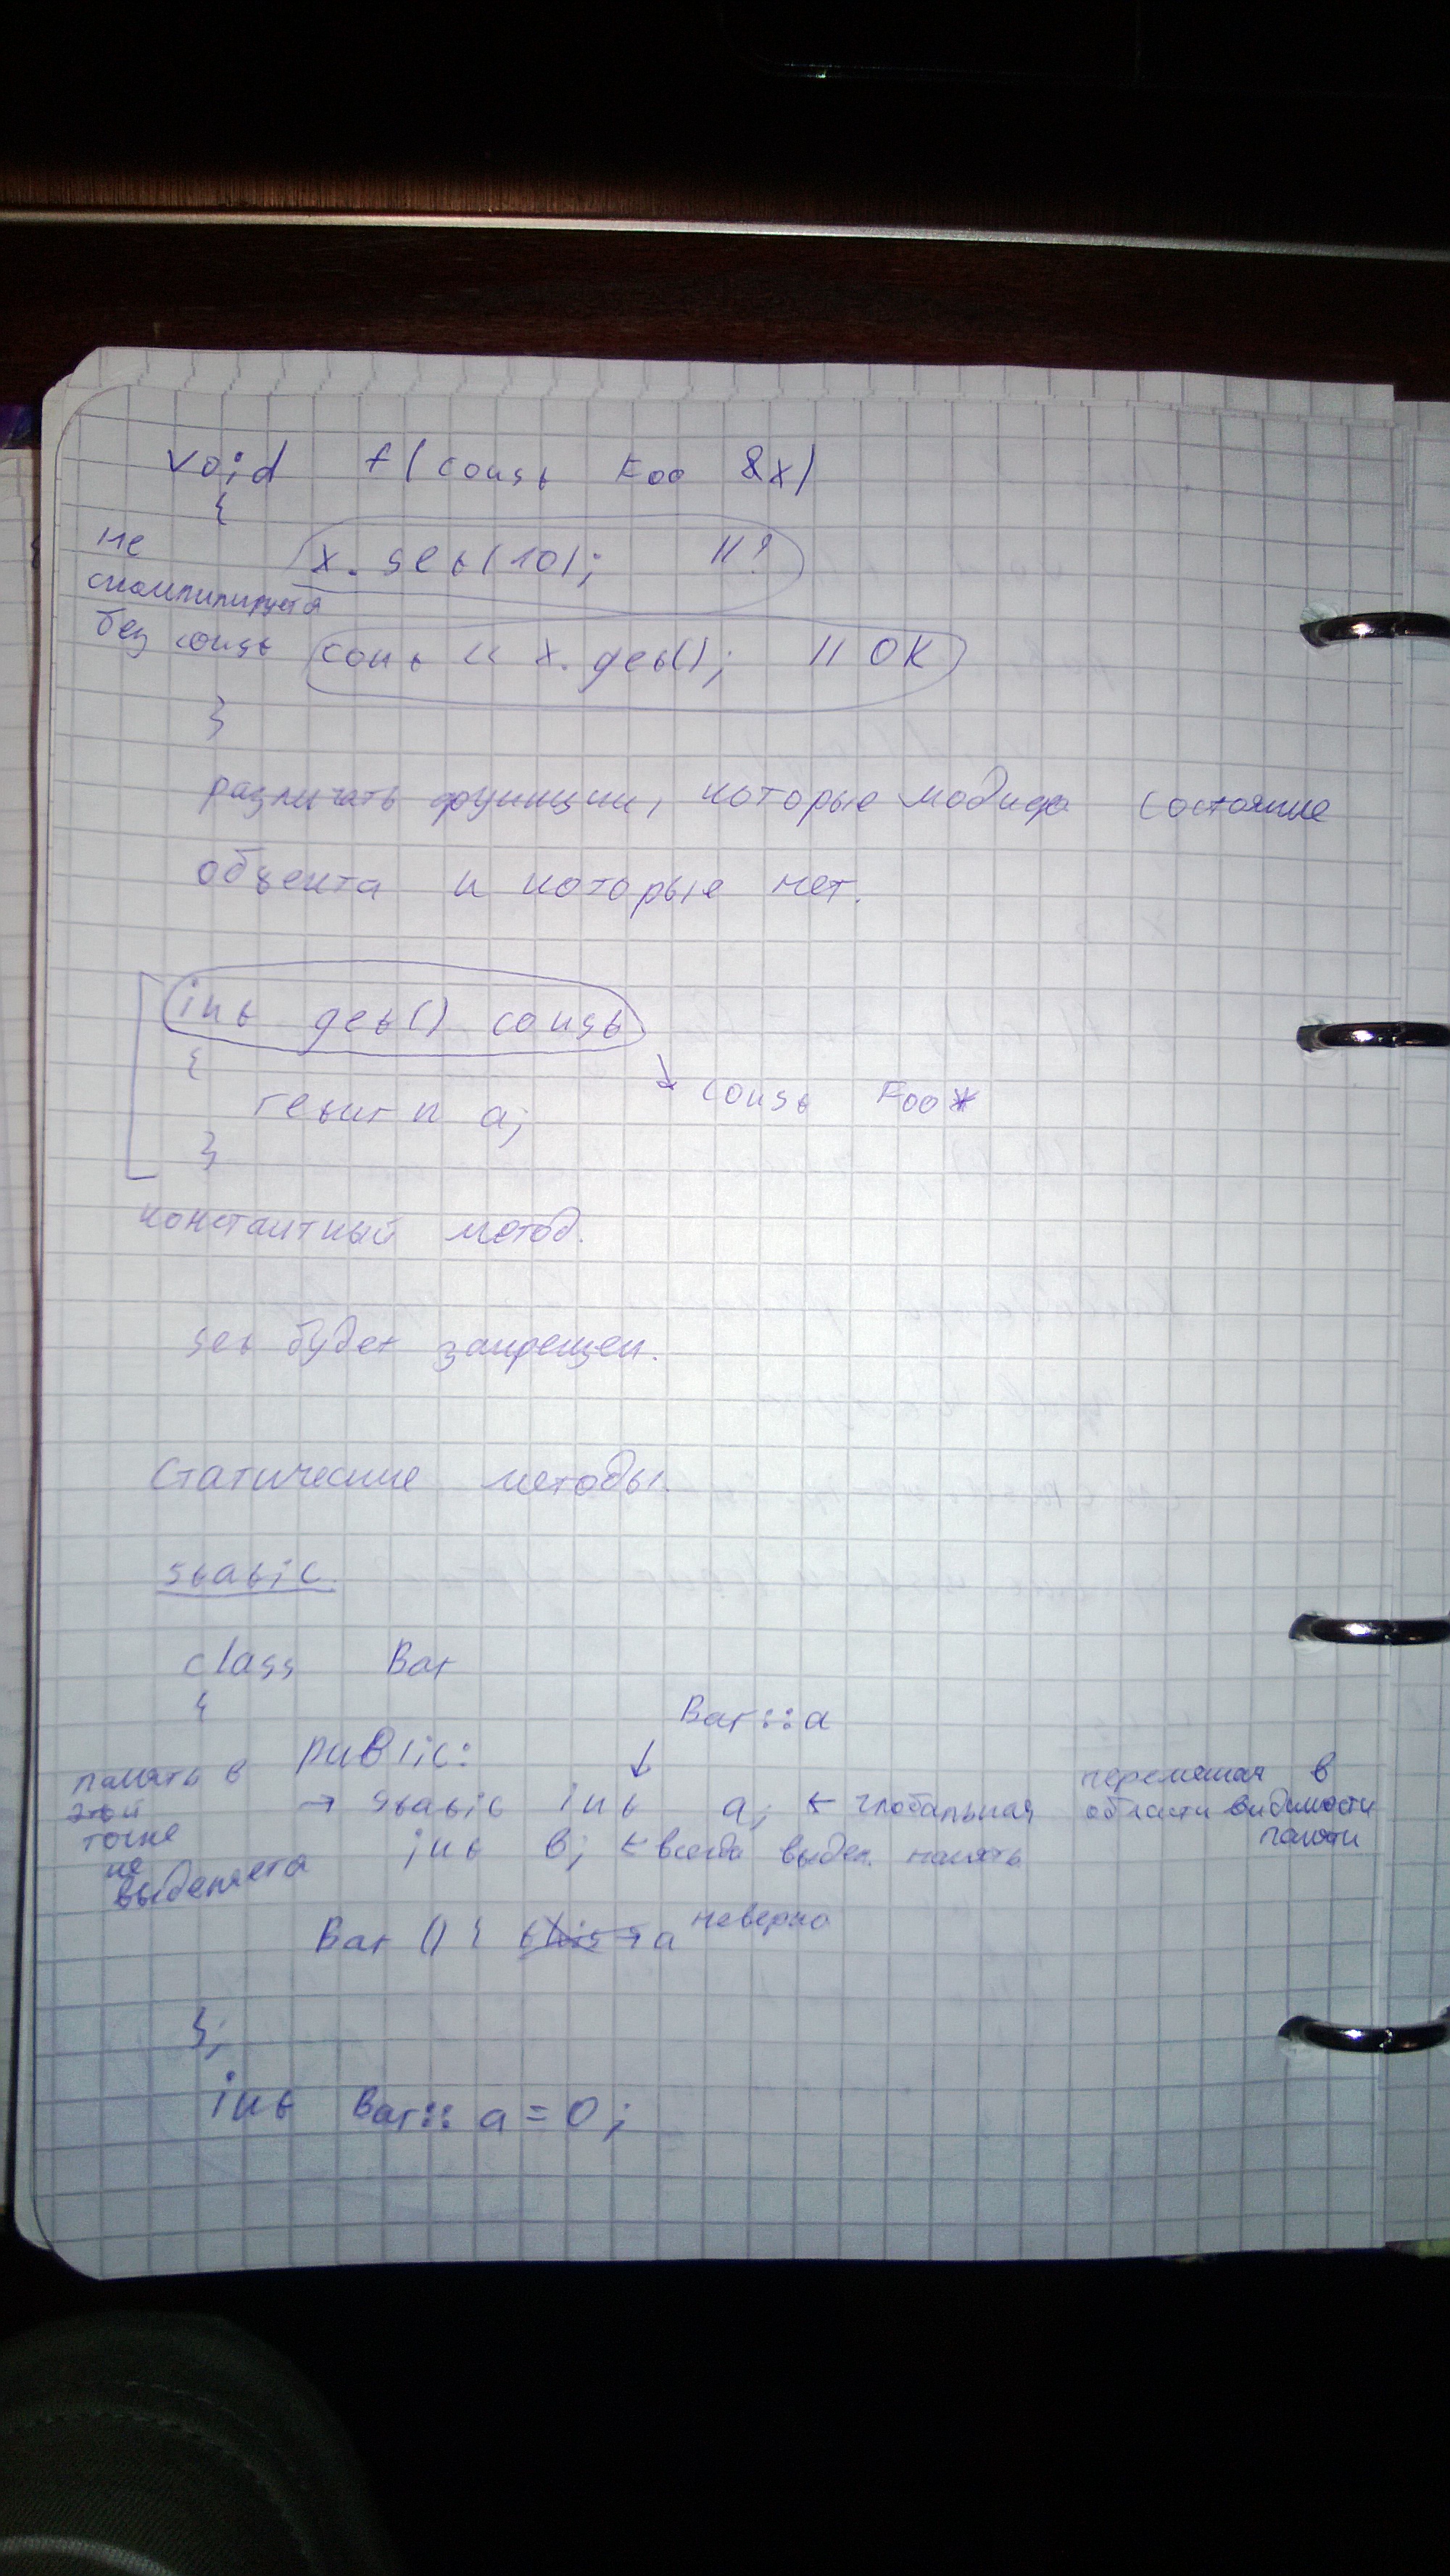 void f(const Foo &x)
{
не
x.set(10); //?
скомпилируется
без const
cout << x.get(); // OK
}
различать функции, которые модифо состояние
объекта и которые нет.
int get() const
{
→ const Foo*
return a;
}
константный метод.
set будет запрещен.
Статические методы.
static.
class Bar
{
Bar::a
public: ↓
память в
этой
точке
не
выделяета
→ static int a; ← глобальная переменая в
области видимости
int b; ← всегда выдел. память
Bar () { this → a неверно
};
int Bar::a = 0;